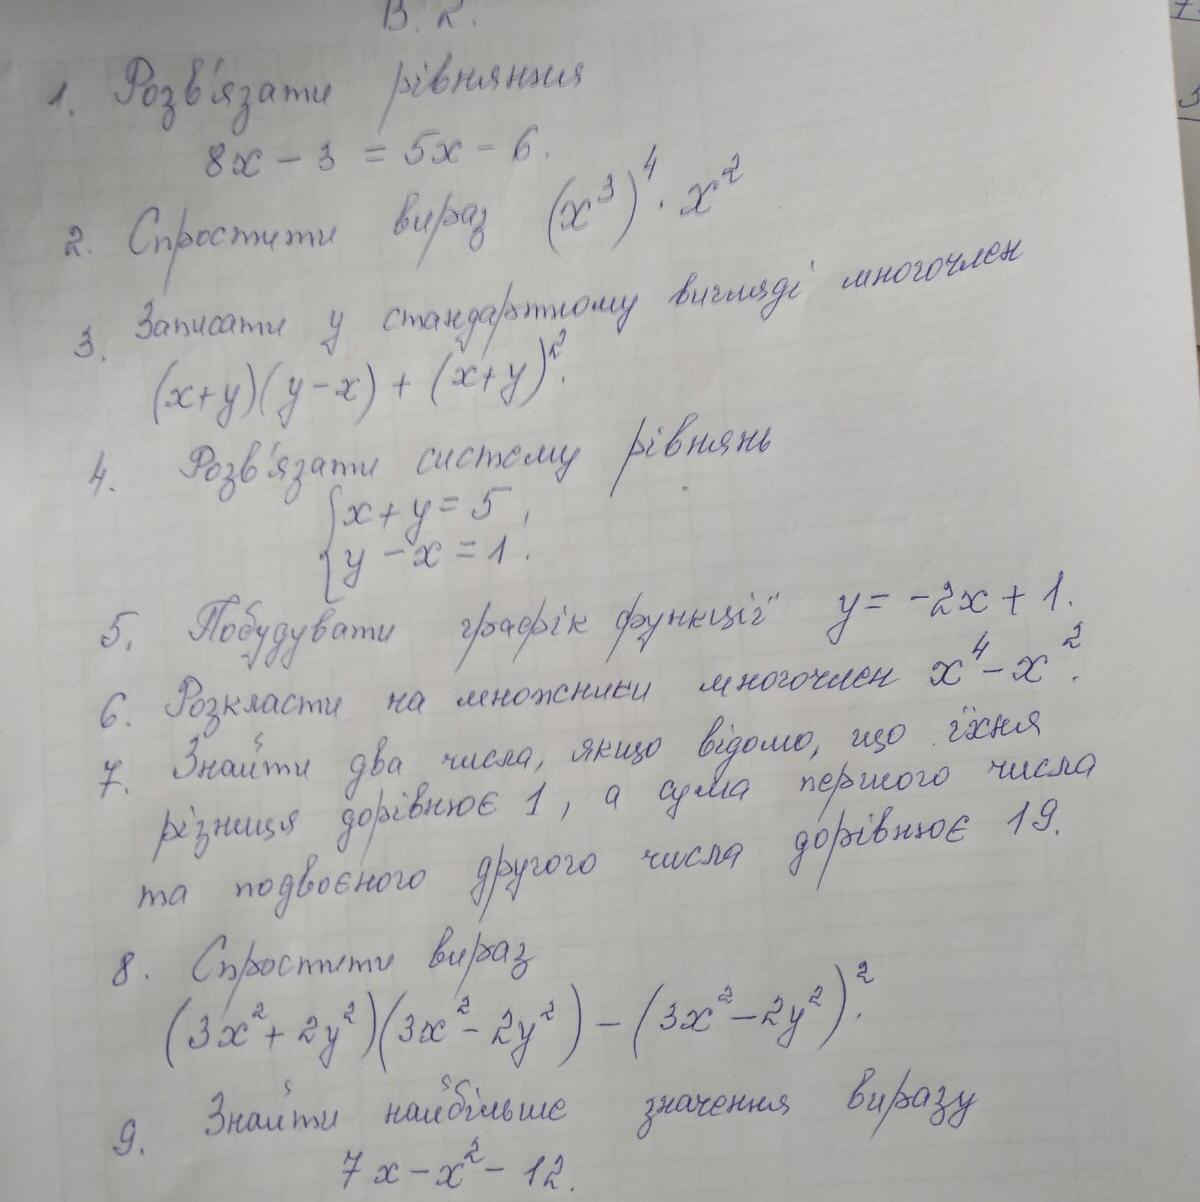 В. 2.
1. Розв'язати рівняння
8x - 3 = 5x - 6.
2. Спростити вираз (x³)⁴ · x²
3. Записати у стандартному вигляді многочлен
(x+y)(y-x) + (x+y)².
4. Розв'язати систему рівнянь
{x + y = 5,
y - x = 1.
5. Побудувати графік функції y = -2x + 1.
6. Розкласти на множники многочлен x⁴ - x².
7. Знайти два числа, якщо відомо, що їхня
різниця дорівнює 1, а сума першого числа
та подвоєного другого числа дорівнює 19.
8. Спростити вираз
(3x² + 2y²)(3x² - 2y²) - (3x² - 2y²)².
9. Знайти найбільше значення виразу
7x - x² - 12.